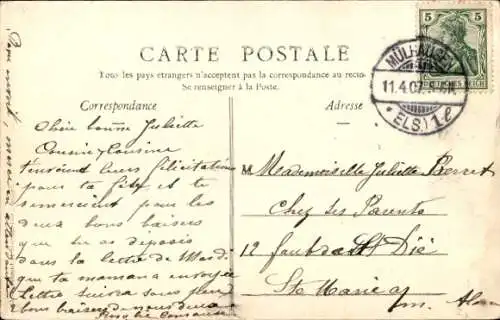 CARTE POSTALE
Tous les pays étrangers n'acceptent pas la correspondance au recto
Se renseigner à la Poste.
Correspondance
Adresse
5 5
MÜLHAUSEN
11.4.07.
* (ELS.) 1e
Chère bonne Juliette
Cousin & Cousine
t'envoient leurs félicitations
pour ta fête et te
remercient pour les
deux bons baisers
que tu as déposés
dans la lettre de Mardi
que ta maman a envoyée
Lettre suivra sous peu
bons baisers de nous deux
Mademoiselle Juliette Perret
Chez ses Parents
12 faub de St Dié
Ste Marie a/
m. Als